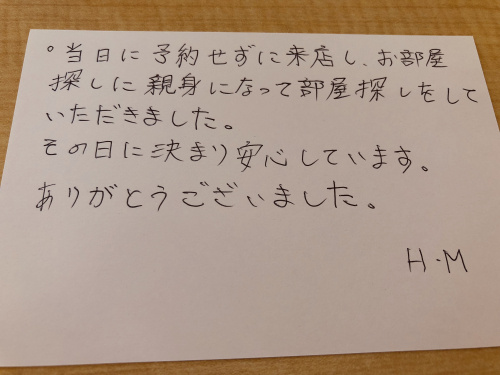 。当日に予約せずに来店し、お部屋
探しに親身になって部屋探しをして
いただきました。
その日に決まり安心しています。
ありがとうございました。
H・M